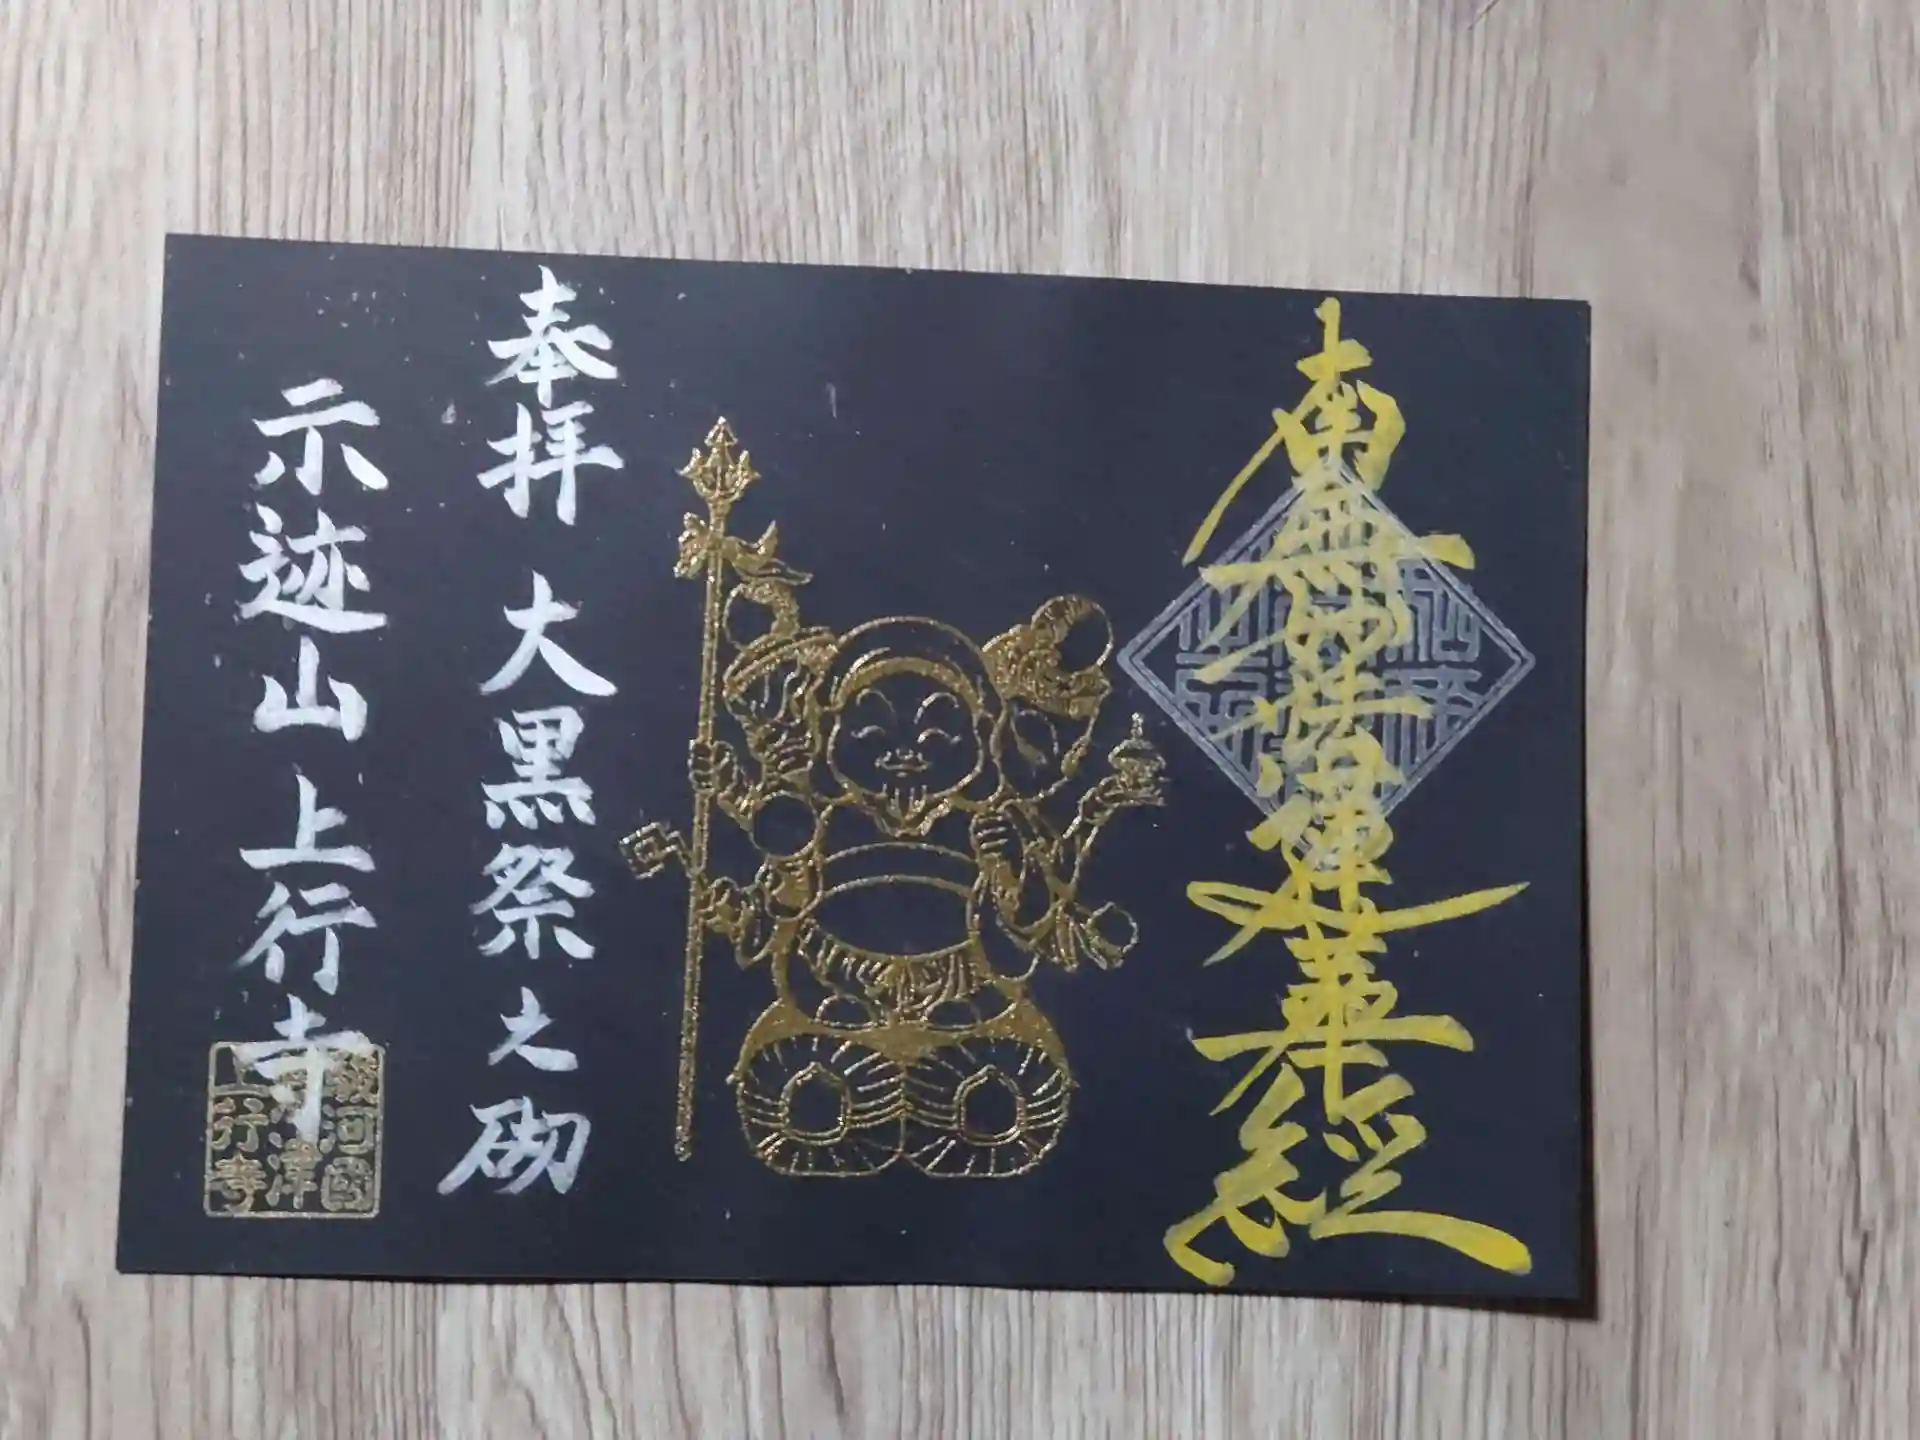 南無妙法蓮華経
奉拝 大黒祭之砌
示迹山 上行寺
駿河國
津
上行寺